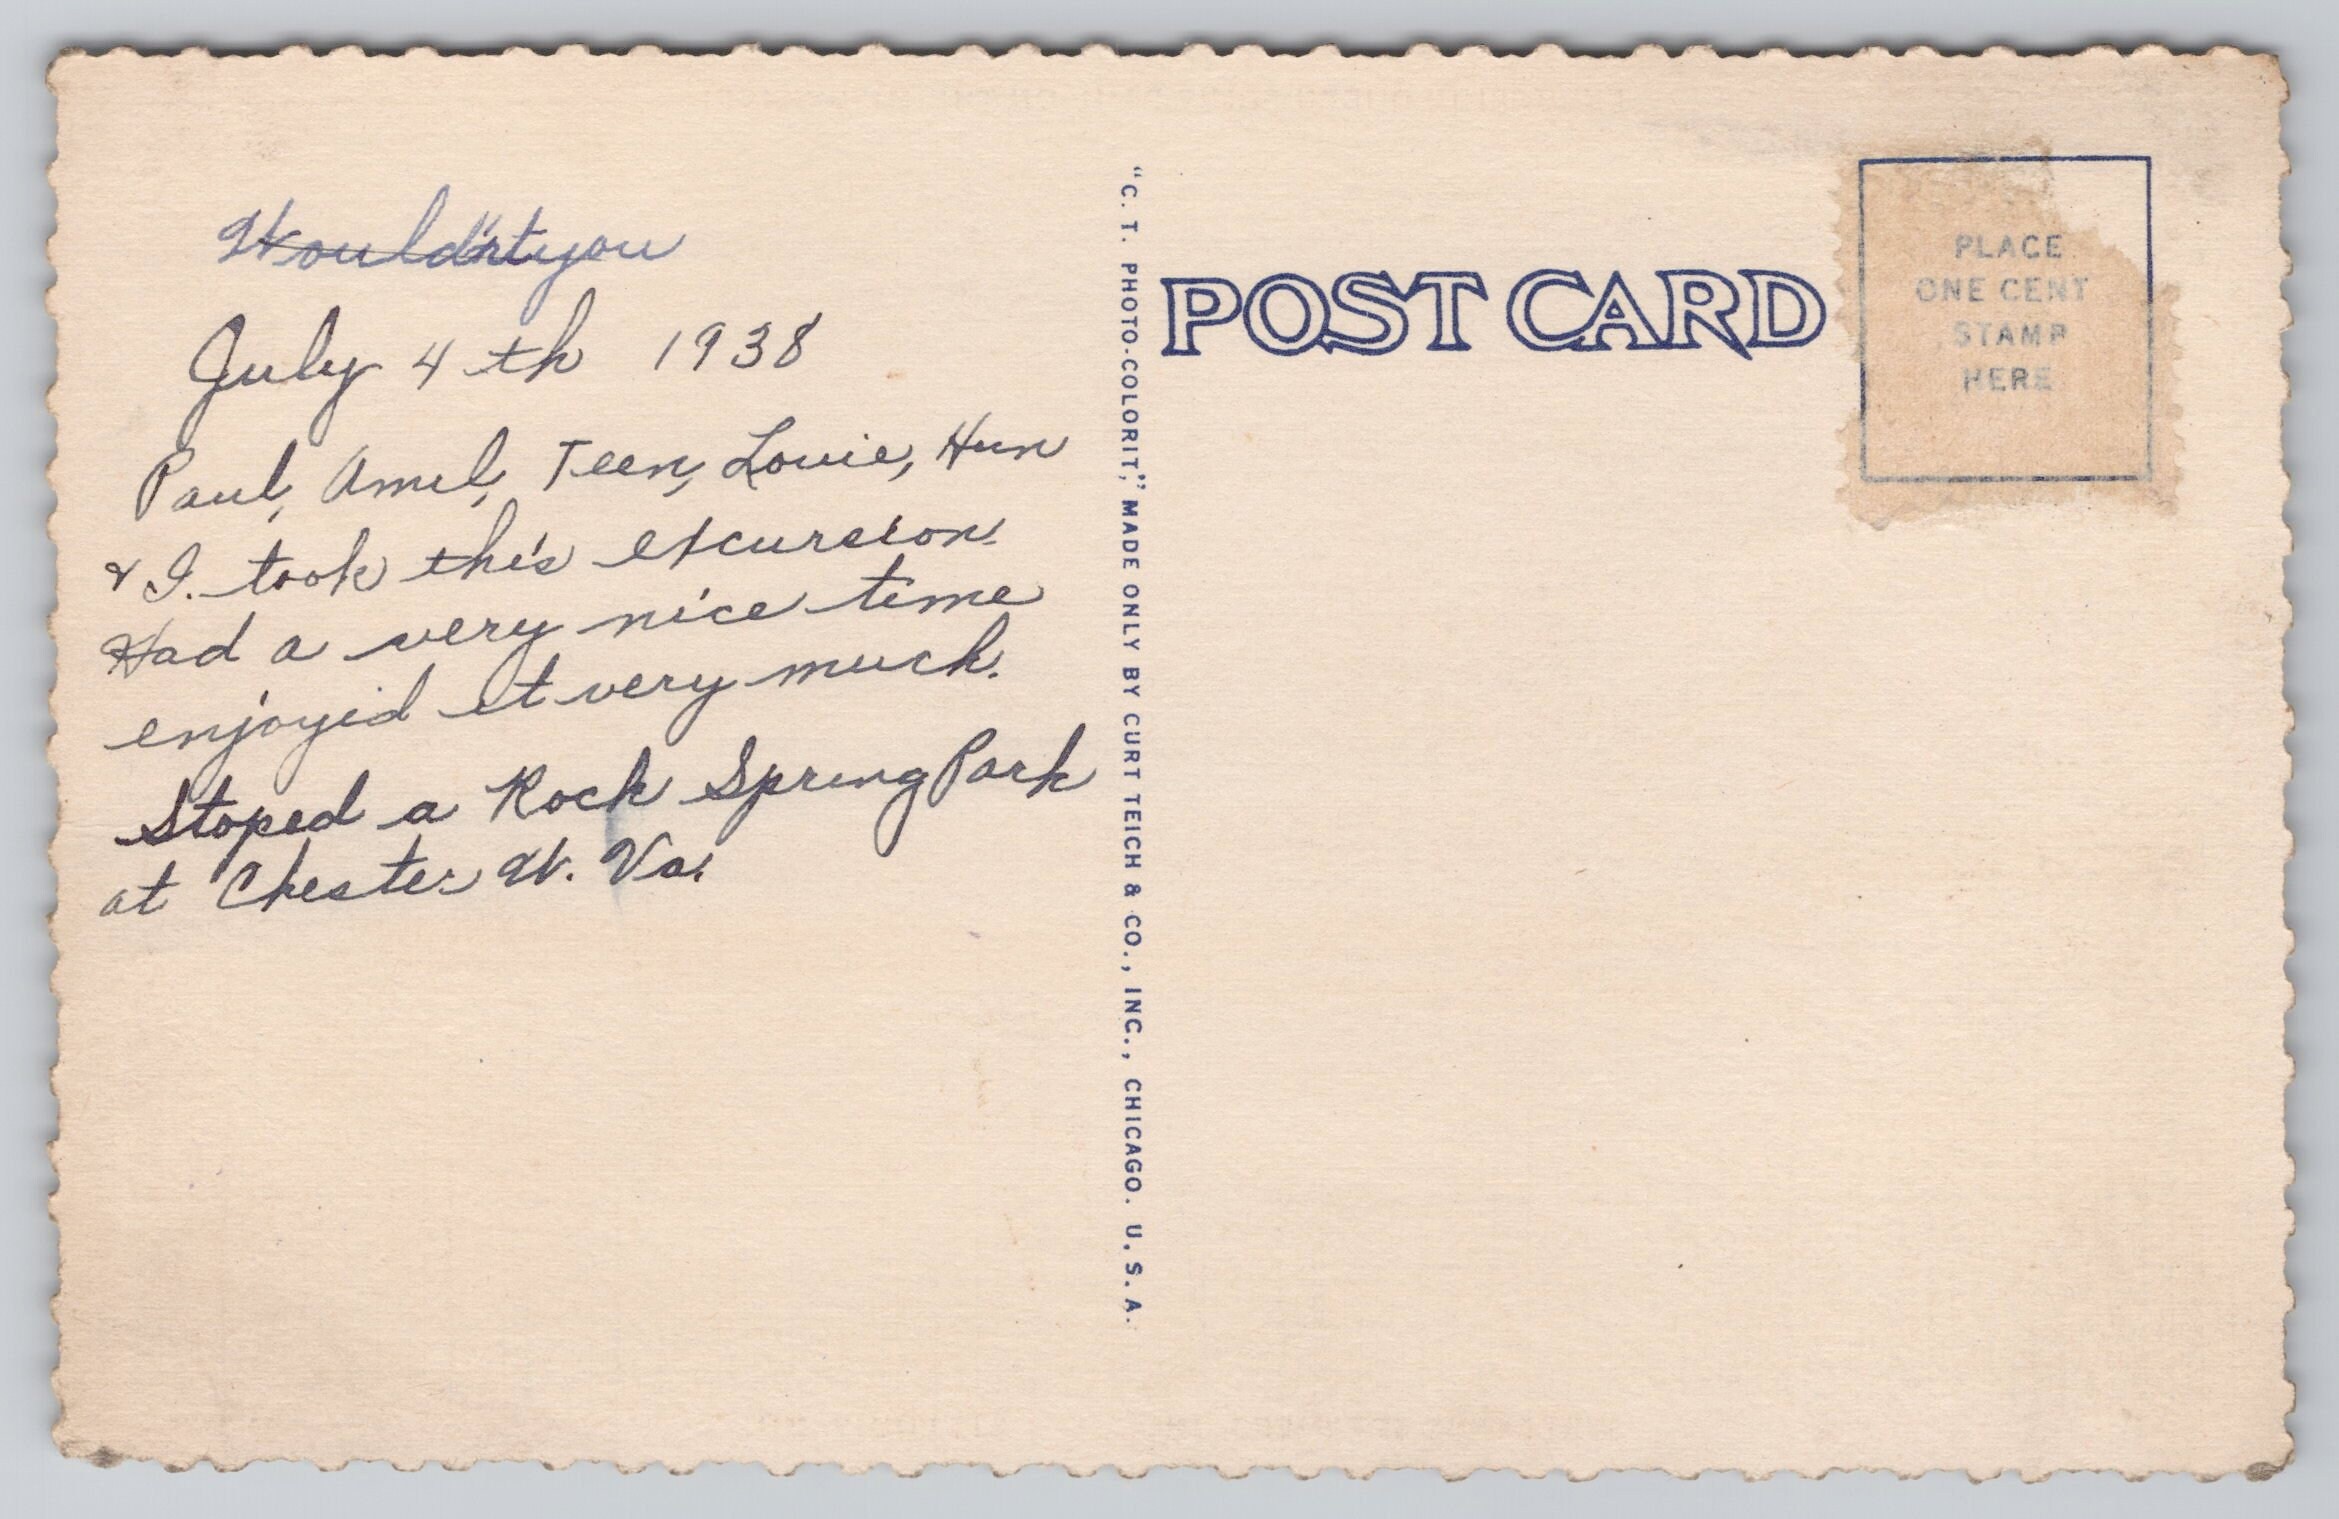 Would'nt you
July 4th 1938
Paul, Amel, Teen, Louie, Hun
& I. took this excursion.
Had a very nice time
enjoyid it very much.
Stoped a Rock Spring Park
at Chester W. Va.
"C. T. PHOTO-COLORIT," MADE ONLY BY CURT TEICH & CO., INC., CHICAGO. U. S. A.
POST CARD
PLACE
ONE CENT
STAMP
HERE